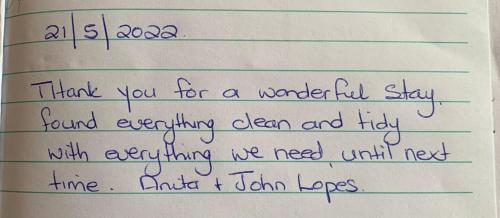 21/5/2022.
Thank you for a wonderful stay,
found everything clean and tidy
with everything we need, until next
time. Anita + John Lopes.